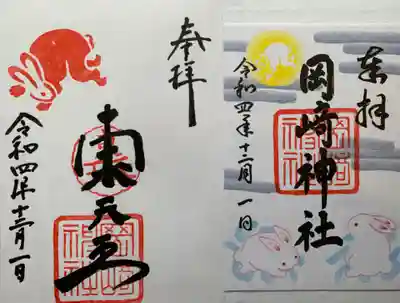 奉拝
岡崎神社
令和四年十二月一日
奉拝
東天王
令和四年十二月一日